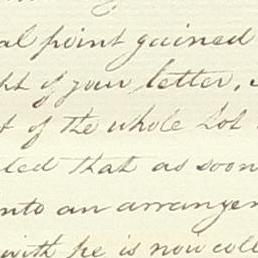 al point gained
ht of your letter,
t of the whole Lot
ded that as soon
nto an arrangem
with he is now coll